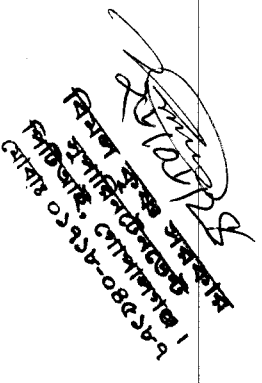 বিমল কৃষ্ণ সরকার
সুপারিনটেনডেন্ট
পিটিআই, গোপালগঞ্জ।
মোবাঃ ০১৭১৮-০৪৫১৮৭